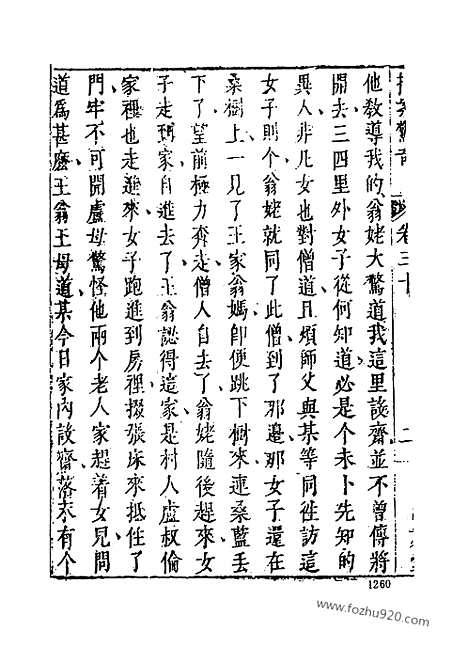 拍案驚奇 卷三十
二
他教導我的翁姥大驚道我這里設齋並不曾傳將
開去三四里外女子從何知道必是个未卜先知的
異人非凡女也對僧道且煩師父與某等同徃訪這
女子則个翁姥就同了此僧到了那邊那女子還在
桑樹上一見了王家翁媽卽便跳下樹來連桑藍丟
下了望前極力奔走僧人自去了翁姥隨後趕來女
子走到家自進去了王翁認得這家是村人盧叔倫
家裡也走進來女子跑進到房裡掇張床來抵住了
門牢不可開盧母驚怪他兩个老人家趕着女兒問
道為甚麽王翁王母道某今日家內設齋落末有个
1260
www.fozhu920.com